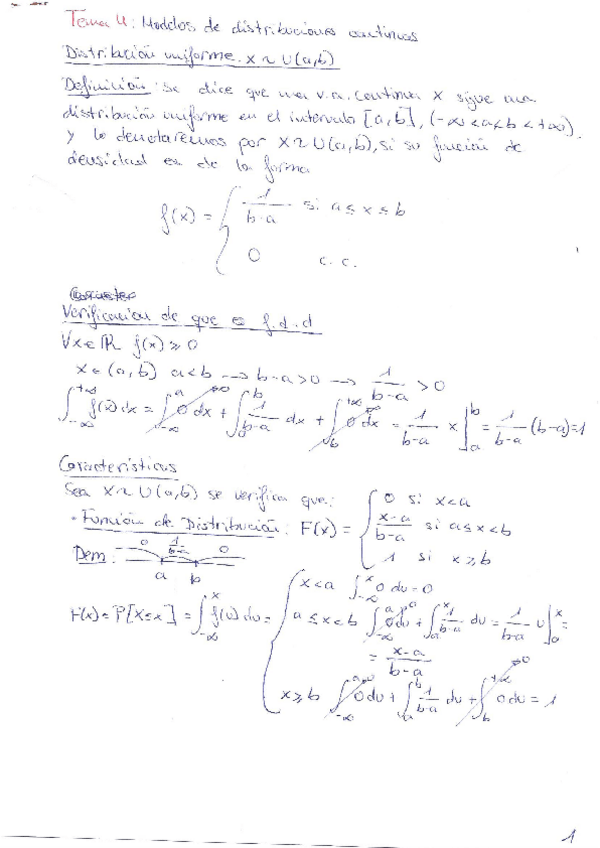 Tema 4: Modelos de distribuciones continuas
Distribución uniforme. X ~ U(a,b)
Definición: Se dice que una v.a. continua X sigue una
distribución uniforme en el intervalo [a,b], (-∞ < a < b < +∞),
y lo denotaremos por X ~ U(a,b), si su función de
densidad es de la forma
f(x) = { 1/(b-a) si a ≤ x ≤ b
0 c.c.
Verificación de que es f.d.d
∀x ∈ ℝ f(x) ≥ 0
x ∈ (a,b) a<b → b-a>0 → 1/(b-a) > 0
∫_{-∞}^{+∞} f(x)dx = ∫_{-∞}^{a} 0dx + ∫_{a}^{b} 1/(b-a) dx + ∫_{b}^{+∞} 0dx = 1/(b-a) x |_{a}^{b} = 1/(b-a) (b-a) = 1
Características
Sea X ~ U(a,b) se verifica que:
· Función de Distribución: F(x) = { 0 si x<a
(x-a)/(b-a) si a≤x<b
1 si x≥b
Dem: 0 1/(b-a) 0
a b
F(x) = P[X≤x] = ∫_{-∞}^{x} f(u)du = { x<a ∫_{-∞}^{x} 0du = 0
a≤x<b ∫_{-∞}^{a} 0du + ∫_{a}^{x} 1/(b-a) du = 1/(b-a) u |_{a}^{x} =
= (x-a)/(b-a)
x≥b ∫_{-∞}^{a} 0du + ∫_{a}^{b} 1/(b-a) du + ∫_{b}^{+∞} 0du = 1
1